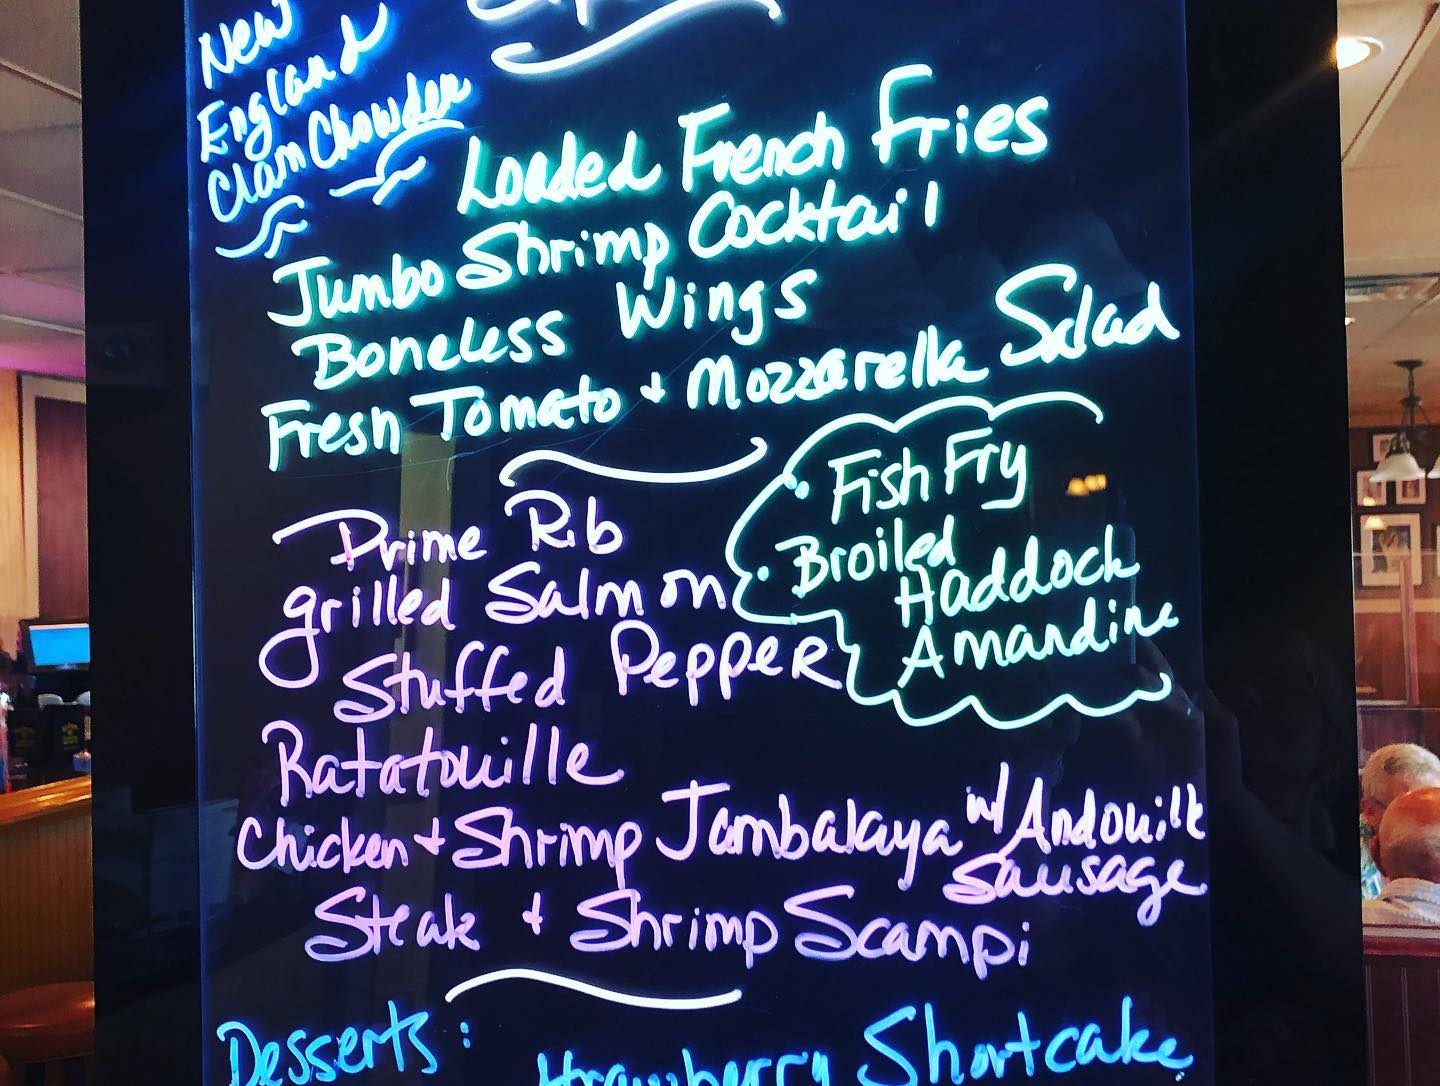 New
England
Clam Chowder
Loaded French Fries
Jumbo Shrimp Cocktail
Boneless Wings
Fresh Tomato + Mozzarella Salad
• Fish Fry
• Broiled
Haddock
Amandine
Prime Rib
grilled Salmon
Stuffed Pepper
Ratatouille
Chicken + Shrimp Jambalaya w/ Andouille
Sausage
Steak + Shrimp Scampi
Desserts:
Strawberry Shortcake